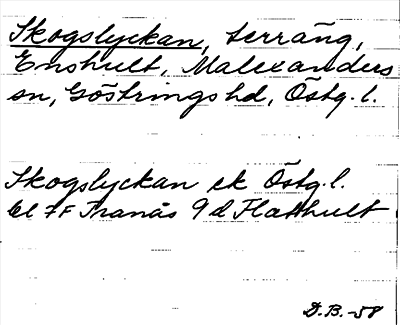 Skogslyckan, terräng,
Enshult, Malexanders
sn, Göstrings hd, Östg. l.
Skogslyckan ek Östg. l.
bl 7F Tranås 9 d Flathult
D.B. -58